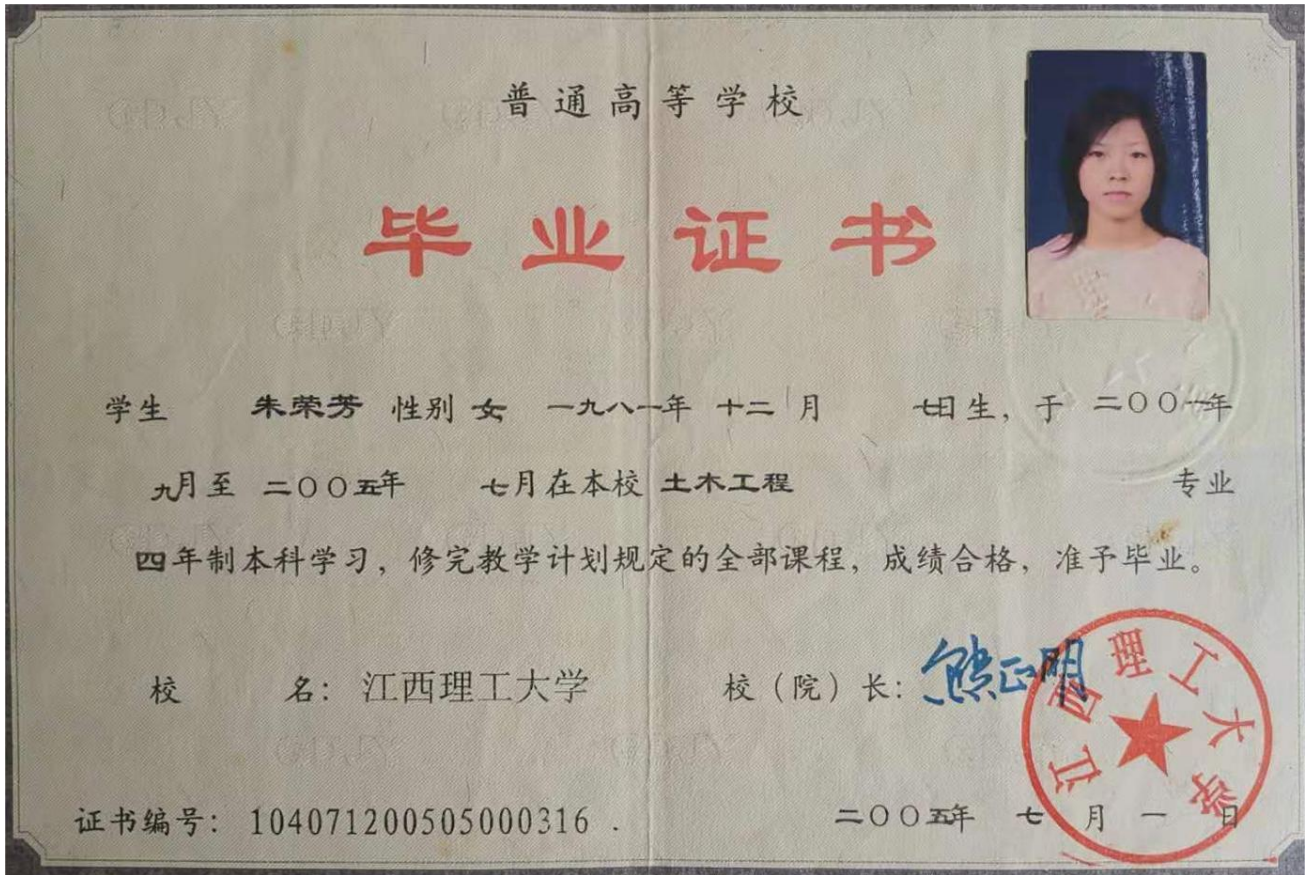 普通高等学校
毕业证书
学生 朱荣芳 性别 女 一九八一年 十二月 七日生，于 二〇〇一年
九月至 二〇〇五年 七月在本校 土木工程 专业
四年制本科学习，修完教学计划规定的全部课程，成绩合格，准予毕业。
校 名：江西理工大学 校（院）长：熊正明
江西理工大学
证书编号：104071200505000316 . 二〇〇五年 七月一日